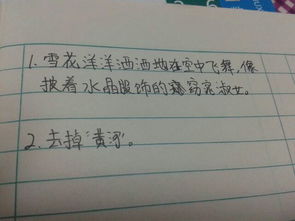 1. 雪花洋洋洒洒地在空中飞舞,像
披着水晶服饰的窈窕淑女。
2. 去掉“黄河”。